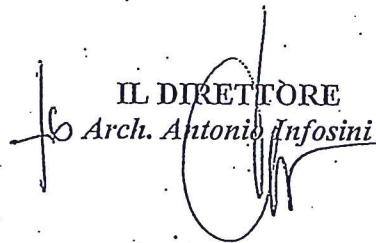 IL DIRETTORE
Arch. Antonio Infosini